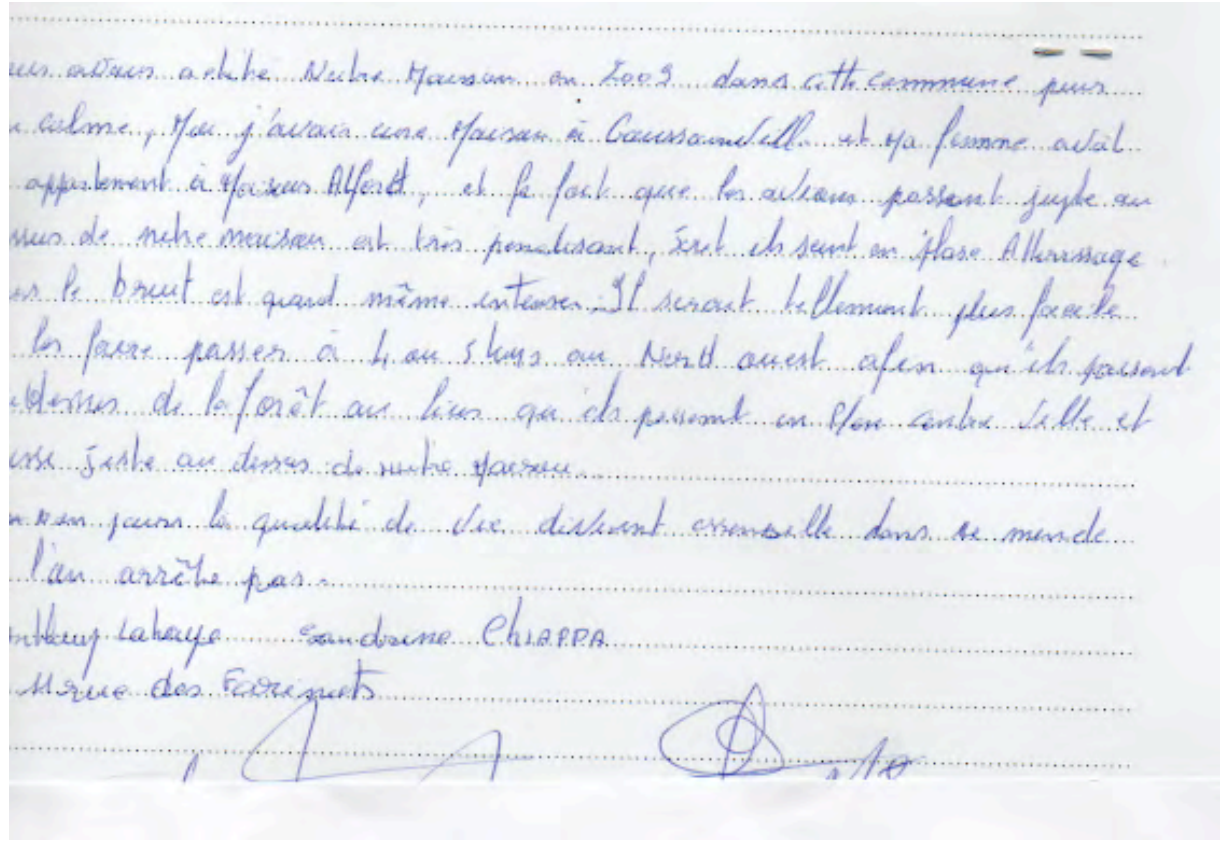 avions acheté Notre Maison en 2009 dans cette commune pour
calme, Moi j'avais une Maison à Goussainvill et Ma femme avait
appartement à Maisons Alfort, et le fait que les avions passent juste au
de notre maison est très penalisant, ils sont en phase Atterissage
le bruit est quand même intense. Il serait tellement plus facile
les faire passer à 4 ou 5 kms au Nord ouest afin qu'ils passent
de la forêt au lieu qu'ils passent en plein centre ville et
juste au dessus de notre Maison.
jours la qualité de vie devient essensielle dans ce monde
l'on arrête pas.
Lahaye Sandrine CHIAPPA
rue des Farinets